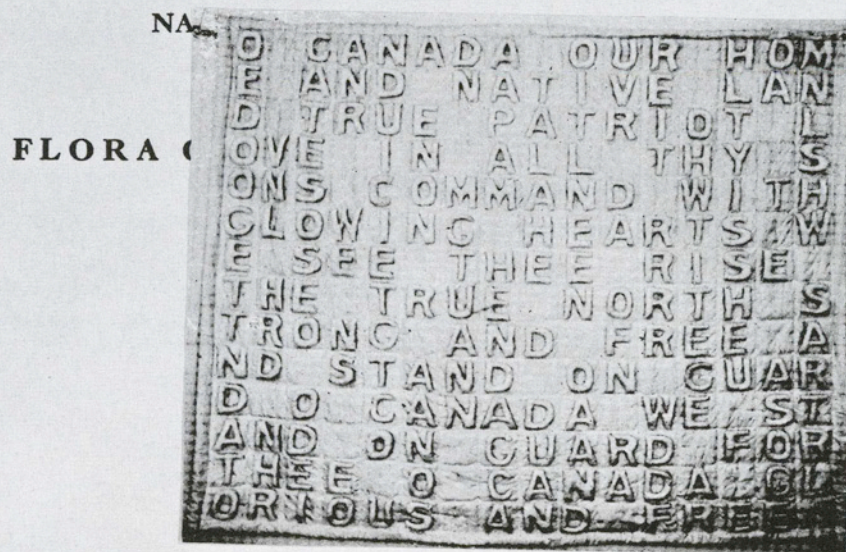 NA
FLORA
O CANADA OUR HOM
E AND NATIVE LAN
D TRUE PATRIOT L
OVE IN ALL THY S
ONS COMMAND WITH
GLOWING HEARTS W
E SEE THEE RISE
THE TRUE NORTH S
TRONG AND FREE A
ND STAND ON GUAR
D O CANADA WE ST
AND ON GUARD FOR
THEE O CANADA GL
ORIOUS AND FREE